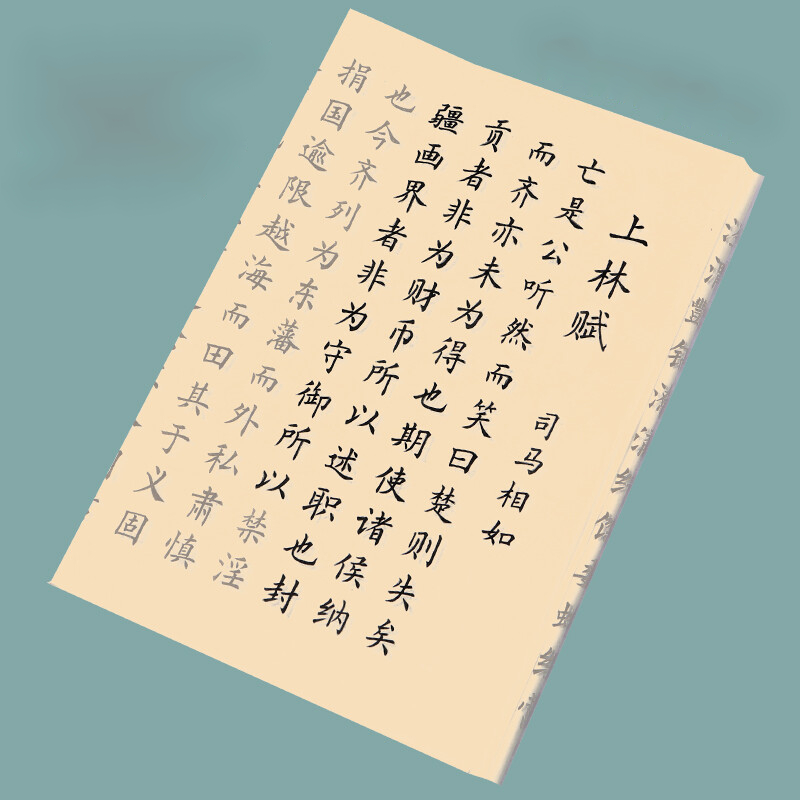 上林赋
司马相如
亡是公听然而笑曰楚则失矣
而齐亦未为得也期使诸侯纳
贡者非为财币所以述职也封
疆画界者非为守御所以禁淫
也今齐列为东藩而外私肃慎
捐国逾限越海而田其于义固